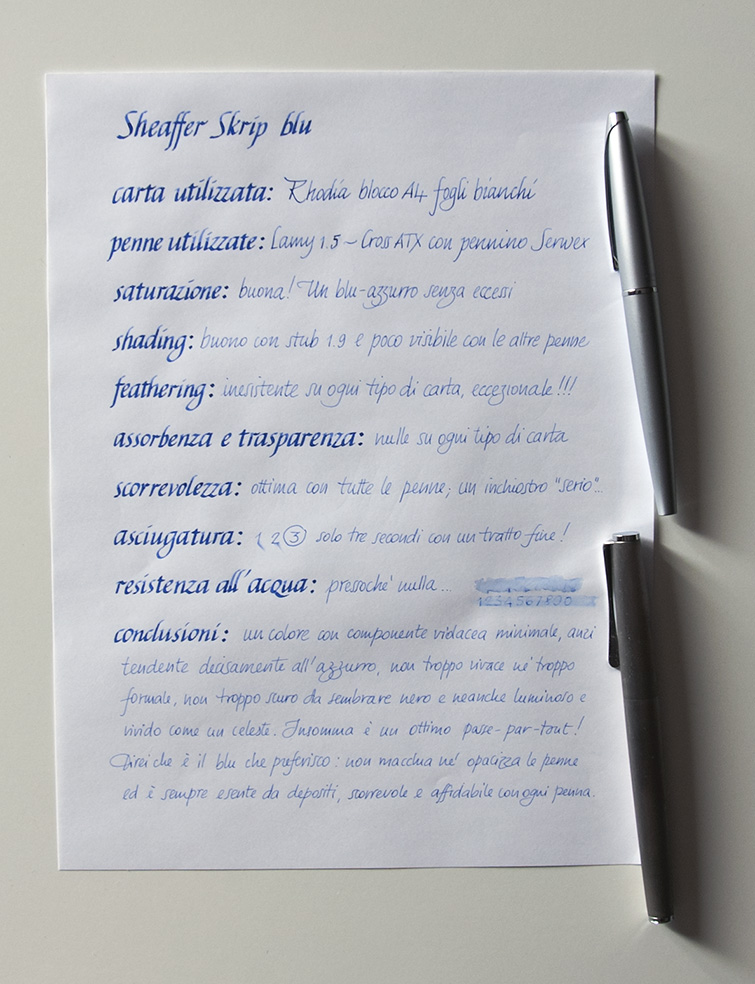 Sheaffer Skrip blu
carta utilizzata: Rhodia blocco A4 fogli bianchi
penne utilizzate: Lamy 1.5 ~ Cross ATX con pennino Serwex
saturazione: buona! Un blu-azzurro senza eccessi
shading: buono con stub 1.9 e poco visibile con le altre penne
feathering: inesistente su ogni tipo di carta, eccezionale!!!
assorbenza e trasparenza: nulle su ogni tipo di carta
scorrevolezza: ottima con tutte le penne; un inchiostro "serio"...
asciugatura: 1 2 3 solo tre secondi con un tratto fine!
resistenza all'acqua: pressoche' nulla...
1234567890
conclusioni: un colore con componente violacea minimale, anzi
tendente decisamente all'azzurro, non troppo vivace ne' troppo
formale, non troppo scuro da sembrare nero e neanche luminoso e
vivido come un celeste. Insomma è un ottimo passe-par-tout!
Direi che è il blu che preferisco: non macchia ne' opacizza le penne
ed è sempre esente da depositi, scorrevole e affidabile con ogni penna.